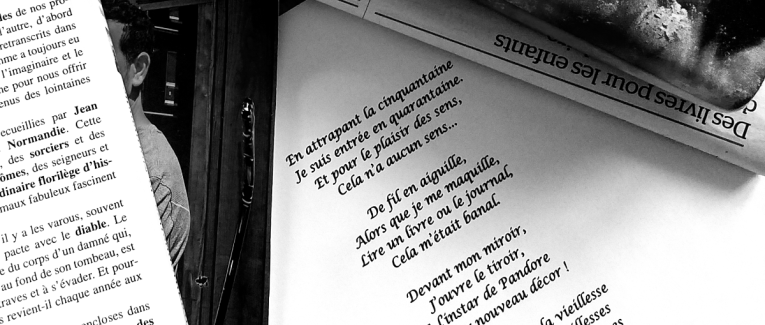 les de nos pro-
l'autre, d'abord
retranscrits dans
me a toujours eu
l'imaginaire et le
ne pour nous offrir
enus des lointaines
ecueillies par Jean
Normandie. Cette
des sorciers et des
ômes, des seigneurs et
dinaire florilège d'his-
maux fabuleux fascinent
il y a les varous, souvent
pacte avec le diable. Le
e du corps d'un damné qui,
au fond de son tombeau, est
raves et à s'évader. Et pour-
s revient-il chaque année aux
encloses dans
des
En attrapant la cinquantaine
Je suis entrée en quarantaine.
Et pour le plaisir des sens,
Cela n'a aucun sens...
De fil en aiguille,
Alors que je me maquille,
Lire un livre ou le journal,
Cela m'était banal.
Devant mon miroir,
J'ouvre le tiroir,
l'instar de Pandore
nouveau décor !
la vieillesse
llesses
Des livres pour les enfants